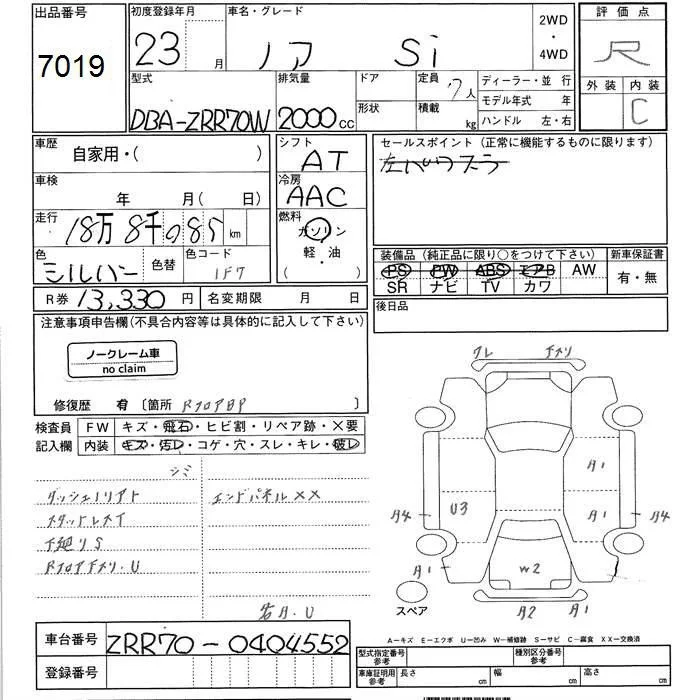 出品番号
7019
初度登録年月
23 月
車名・グレード
ノア Si
2WD
・
4WD
評価点
R
外装 内装
C
型式
DBA-ZRR70W
排気量
2000 cc
ドア
形状
定員
7人
積載
kg
ディーラー・並行
モデル年式 年
ハンドル 左・右
車歴
自家用・( )
車検
年 月( 日)
走行
18万8千085 km
色
シルバー
色替
色コード
1F7
シフト
AT
冷房
AAC
燃料
ガソリン
・
軽・油
( )
セールスポイント(正常に機能するものに限ります)
装備品(純正品に限り○をつけて下さい)
PS PW ABS エアB AW
SR ナビ TV カワ
新車保証書
有・無
R券 13,330 円
名変期限 月 日
後日品
注意事項申告欄(不具合内容等は具体的に記入して下さい)
ノークレーム車
no claim
修復歴 有 〔箇所 RフロアBP 〕
検査員
記入欄
FW キズ・飛石・ヒビ割・リペア跡・×要
内装 キズ・汚レ・コゲ・穴・スレ・キレ・破レ
シミ
ダッシュノリアト
スタッドレスT
下廻りS
エンドパネルXX
A4
U3
A1
A1
A1
A4
W2
A1
A2 A1
スペア
A-キズ E-エクボ U-凹み W-補修跡 S-サビ C-腐食 XX-交換済
車台番号
ZRR70-0404552
登録番号
型式指定番号
参考
種別区分番号
参考
車庫証明用
参考
長さ cm
幅 cm
高さ cm